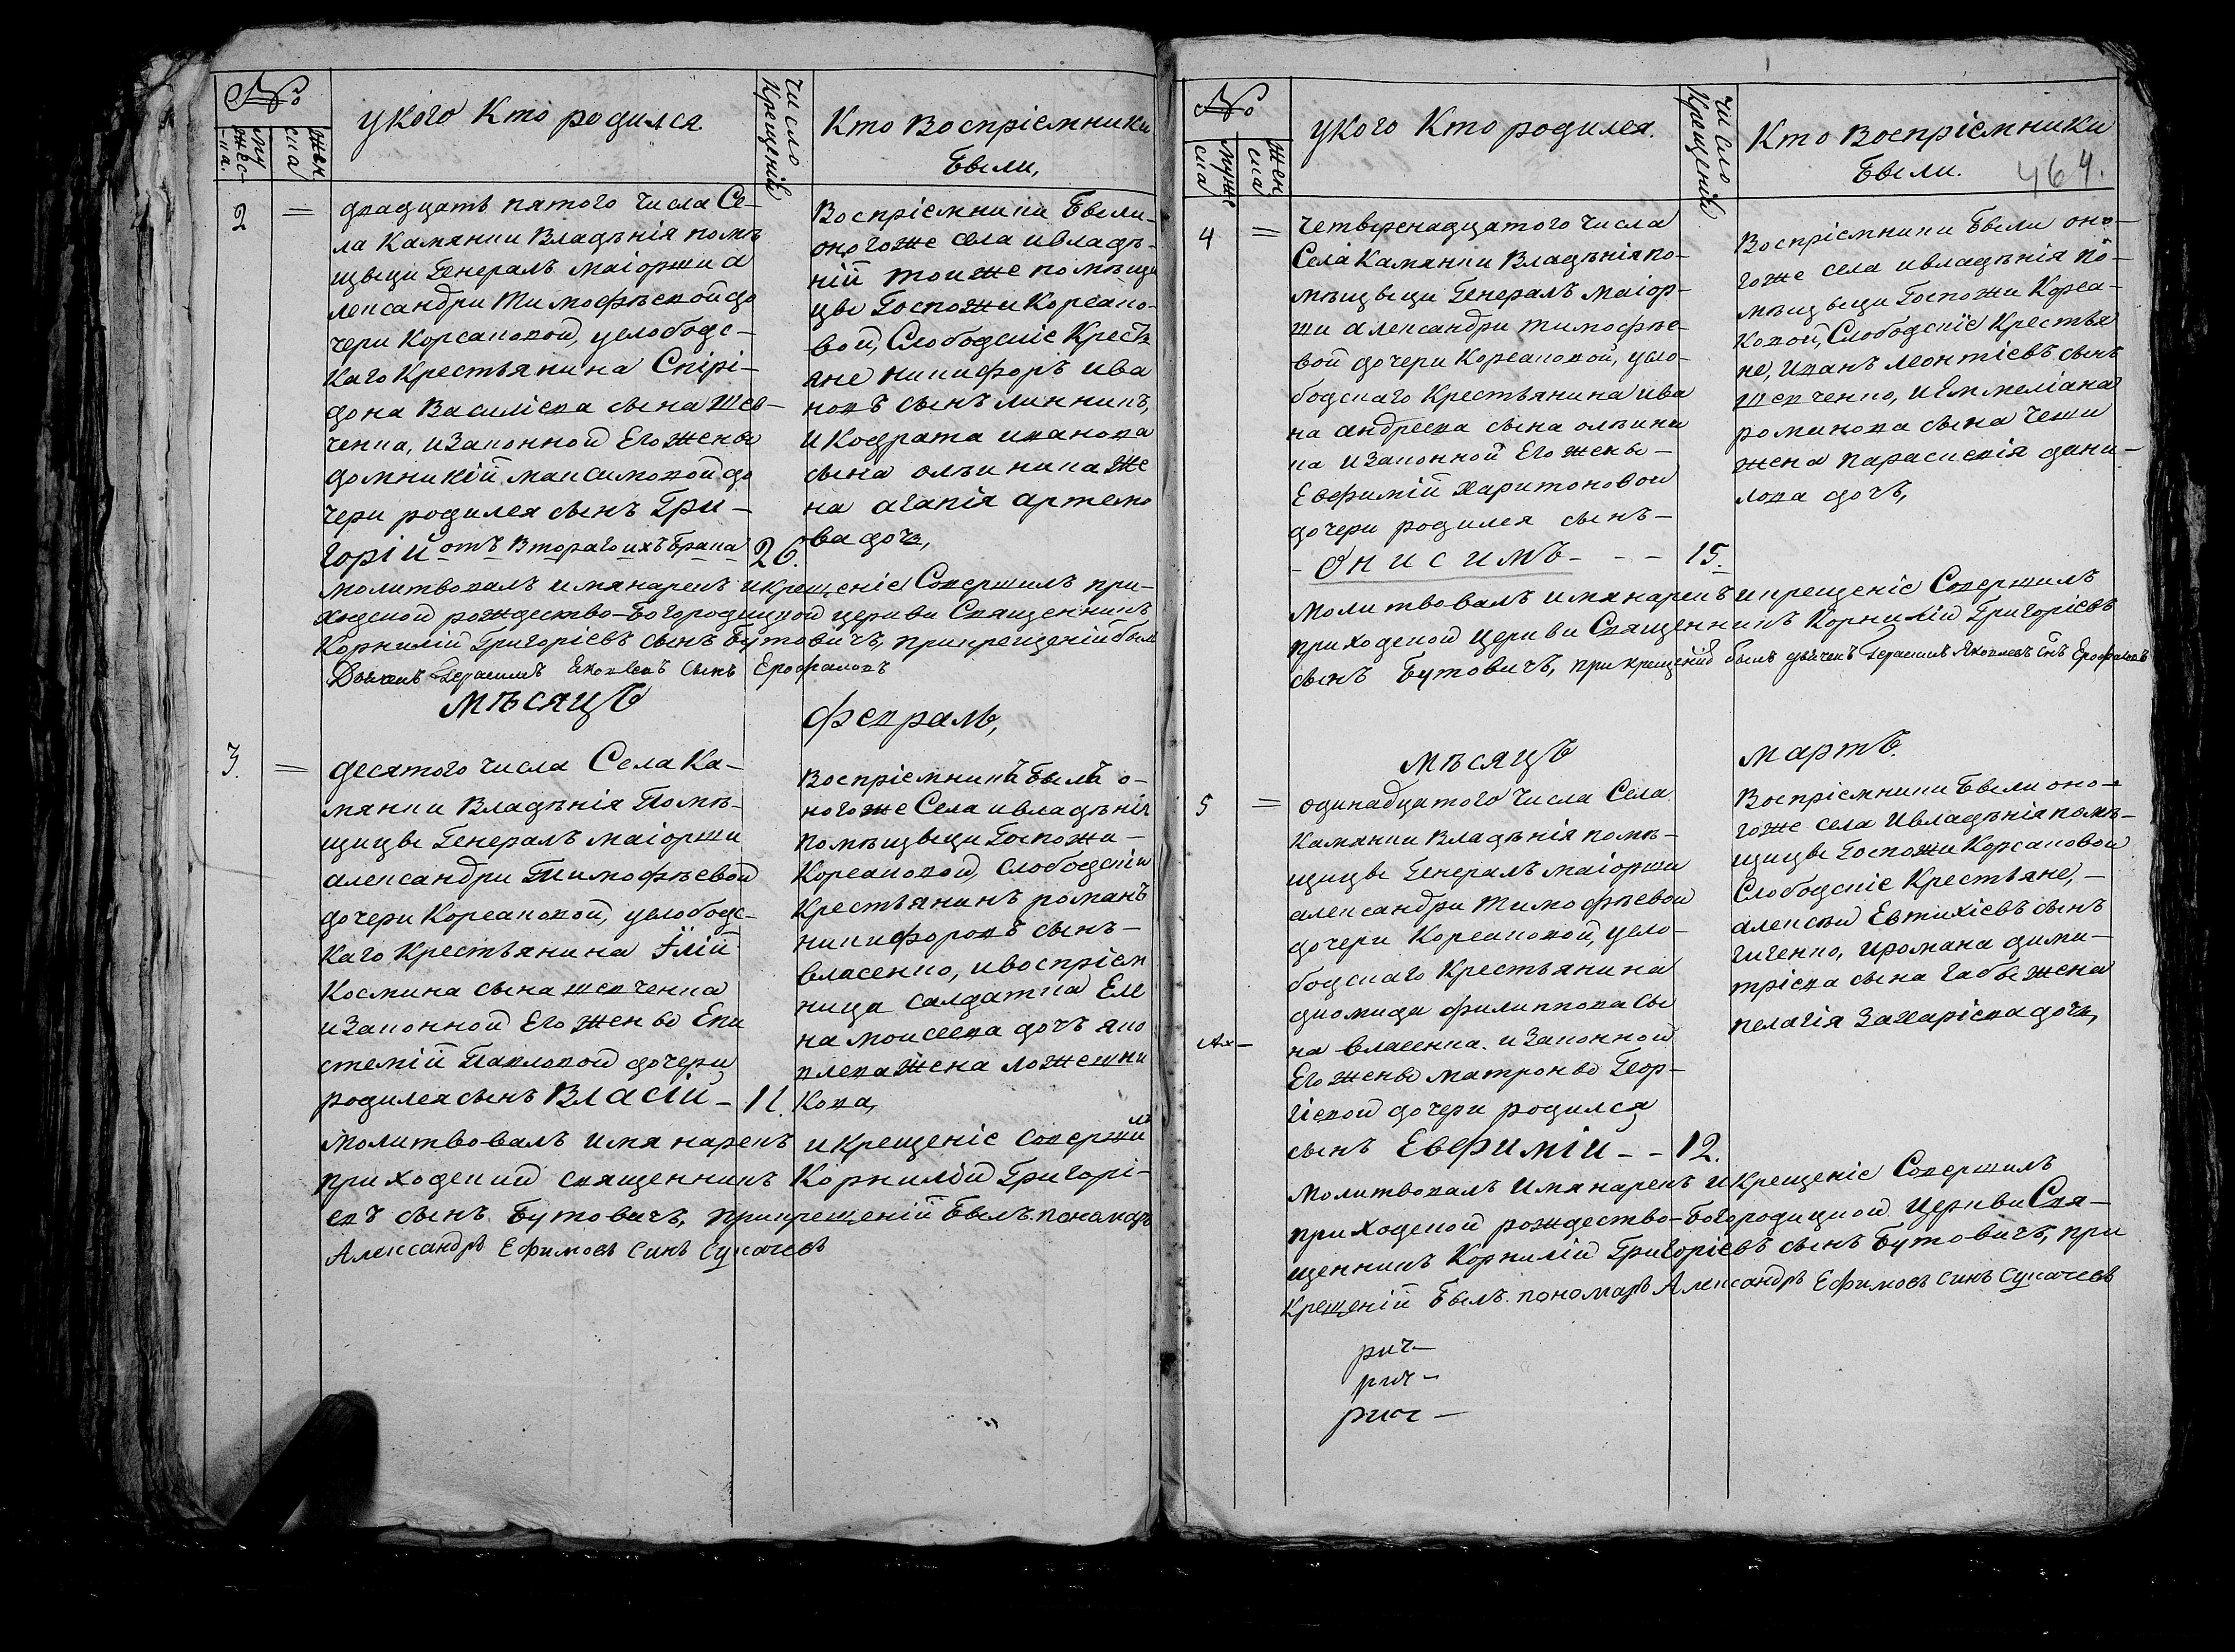 №
мужес-
-ка.
жен
ска
укого Кто родился
число Крещеній
Кто Воспріемники
Были,
2 =
двадцать пятого числа Се-
ла Камянки Владѣнія помѣ
щыци Генералъ маіорши а
лександри Тимофѣевой до
чери Корсаковой, услободс-
каго Крестьянина Спірі-
дона Василіева сына Шев-
ченка, изаконной Его жены
домникій максимовой до
чери родился сынъ Гри-
горій отъ Втораго ихъ брака 26.
Воспріемники Были-
оногоже села ивладѣ-
ній тоиже помѣщи
цы Госпожи Корсако-
вой, Слободскіе Кресть
яне никифоръ ива
новъ сынъ линникъ,
и Кодрата иванова
сына олъиника же
на агапія артемо
ва дочь,
молитвовалъ имянарекъ икрещеніе Совершилъ при-
ходской рождество-Богородицкой церкви Священникъ
Корнилій Григоріевъ сынъ Бутовичъ, прикрещеній былъ
Дьячекъ Герасимъ Яковлевъ сынъ Ерофаловъ
мѣсяцъ
февраль,
3. =
десятого числа Села Ка-
мянки Владѣнія Помѣ-
щицы Генералъ маіорши
александри Тимофѣевой
дочери Корсаковой, услободс-
каго Крестьянина Ілій
Космина сына шевченка
изаконной Его жены Епи
стемій Павловой дочери
родился сынъ Власій - 11.
Воспріемникъ былъ о-
ногоже Села ивладѣнія
помѣщыци Госпожи-
Корсаковой, слободскій
Крестьянинъ романъ
никифоровъ сынъ-
власенко, ивоспріем
ница салдатка Еле
на моисеева дочъ яко
влева жена ложешни
кова,
молитвовалъ имя нарекъ и крещеніе соверши
лъ
приходскій священникъ Корнилій Григорі-
евъ сынъ Бутовичъ, прикрещеній Былъ пономарь
Александръ Ефимовъ синъ Сукачевъ
№
мужес
ска
жен
ска
укого Кто родился.
число Крещеній
Кто Воспріемники
Были.
464.
4 =
четверенадцатого числа
Села Камянки Владѣнія по-
мѣщыци Генералъ маіор-
ши александри тимофѣе-
вой дочери Корсаковой, усло-
бодскаго Крестьянина ива
на андреева сына олъини
ка изаконной Его жены-
Евфимій Харитоновой
дочери родился сынъ-
- Онисимъ - - - 15.
Воспріемники Были оно-
гоже села ивладѣнія по-
мѣщыци Госпожи Корса-
ковой, Слободскіе Крестья
не, иванъ леонтіевъ сынъ
шевченко, и Еммеліана
романова сына чеши
жена параскевія дани-
лова дочъ,
молитвовалъ имянарекъ икрещеніе Совершилъ
приходской церкви Священникъ Корнилій Григоріевъ
сынъ Бутовичъ, при крещеній былъ дьячекъ Герасимъ Яковлевъ снъ Ерофаловъ
мѣсяцъ
мартъ.
5 =
одинадцатого числа Села
Камянки Владѣнія помѣ-
щицы Генералъ маіорши
александри тимофѣевой
дочери Корсаковой, усло-
бодскаго Крестьянина
диомида филиппова сы
на власенка. изаконной
Его жены матроны Геор-
гіевой дочери родился
сынъ Евфимій - - 12.
Воспріемники Были оно-
гоже села Ивладѣнія помѣ-
щицы Госпожи Корсаковой
Слободскіе Крестьяне, -
алексѣй Евтихіевъ сынъ
гиченко, иромана дими-
тріева сына габы жена
пелагія Захаріева дочь,
молитвовалъ имянарекъ икрещеніе Совершилъ
приходской рождество-Богородицкой церкви Свя-
щенникъ Корнилій Григоріевъ сынъ Бутовичъ, при
Крещеній Былъ. пономаръ Александръ Ефимовъ синъ Сукачевъ